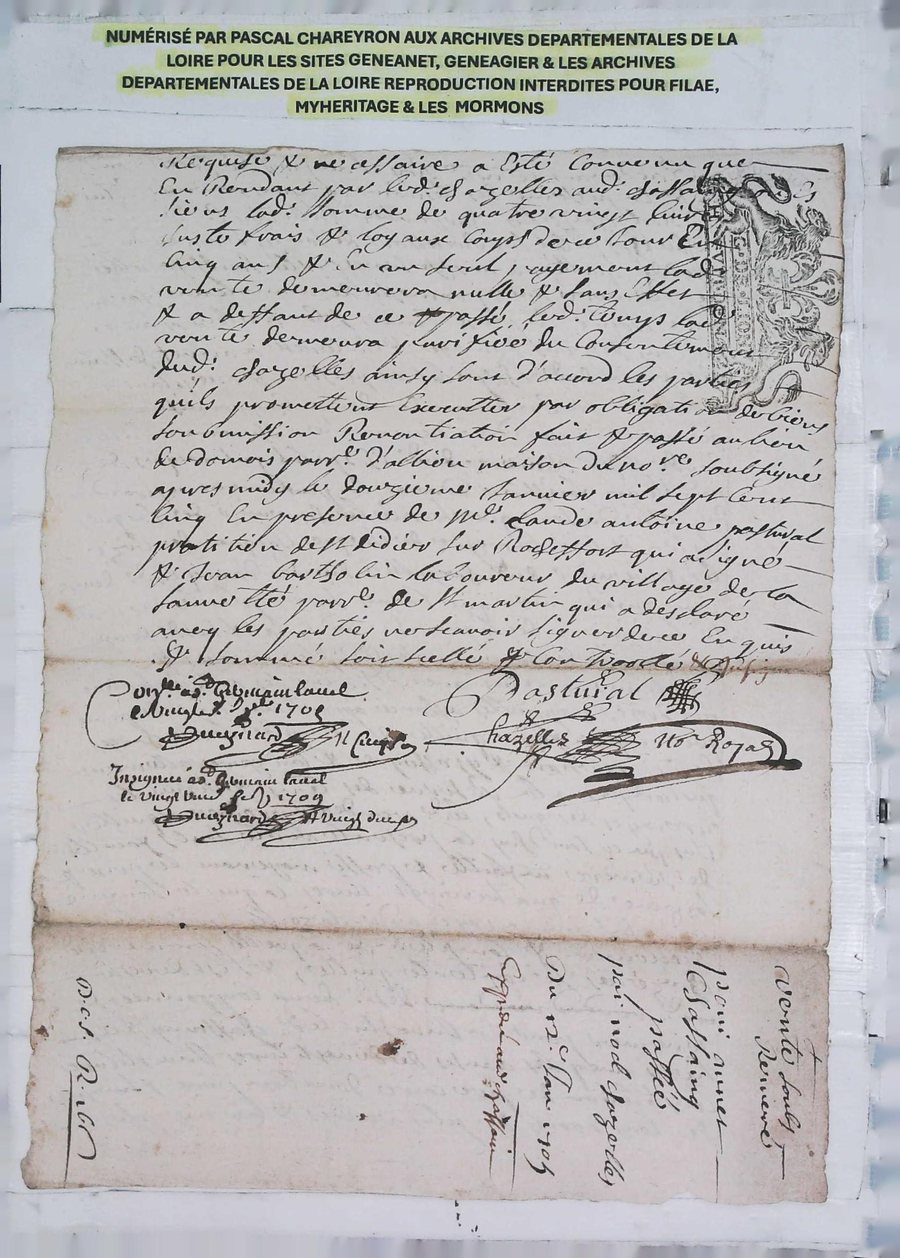 NUMÉRISÉ PAR PASCAL CHAREYRON AUX ARCHIVES DEPARTEMENTALES DE LA
LOIRE POUR LES SITES GENEANET, GENEAGIER & LES ARCHIVES
DEPARTEMENTALES DE LA LOIRE REPRODUCTION INTERDITES POUR FILAE,
MYHERITAGE & LES MORMONS
Requise & necessaire a Esté Convenu que
En Rendant par led. chazelles aud. chassaing
siens lad. somme de quatre vingt livres
juste frais & loyaux coups dece jour En
Cinq ans & En un seul payement lad
vente demeurera nulle & sans Effet
& a deffaut de ce & passé led. temps lad
vente demeura purifiée du Consentement
dud. chazelles ainsy sont d'accord les parties
quils promettent Executter par obligation de biens
soubmission Renontiation fait & passé au lieu
de domois parr.e d'albieu maison du no.re soubsigné
apres midy le douzieme Janvier mil sept Cent
Cinq En presence de m.e claude antoine pastural
pratitien de st didier sur Rocheffort qui a signé
& Jean bartholin laboureur du village de la
parr.e de st martin qui a desclaré
avecq les parties ne scavoir signer de ce Enquis
& sommé soit scellé & Controollé
Con.llé a st Germain laval
le vingt 1705
Pastural
Chazelles
No.re Royal
Insignué a st Germain laval
le vingt 1709
vente soubs
Remeré
pour
Chassaing
passée
par noel chazelles
Du 12.e Janv 1705
Expedié aud chassain